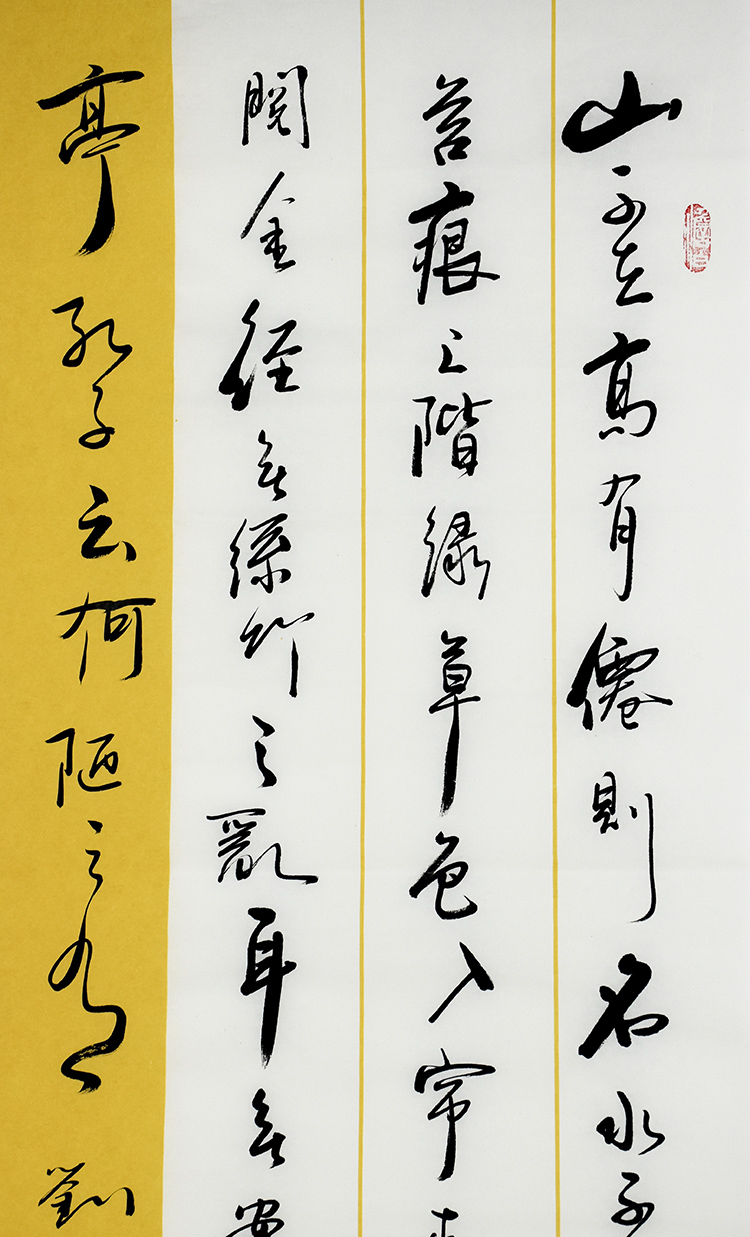 山不在高有僊則名水不
苔痕上階緑草色入帘
閲金經無絲竹之亂耳無
亭孔子云何陋之有 劉